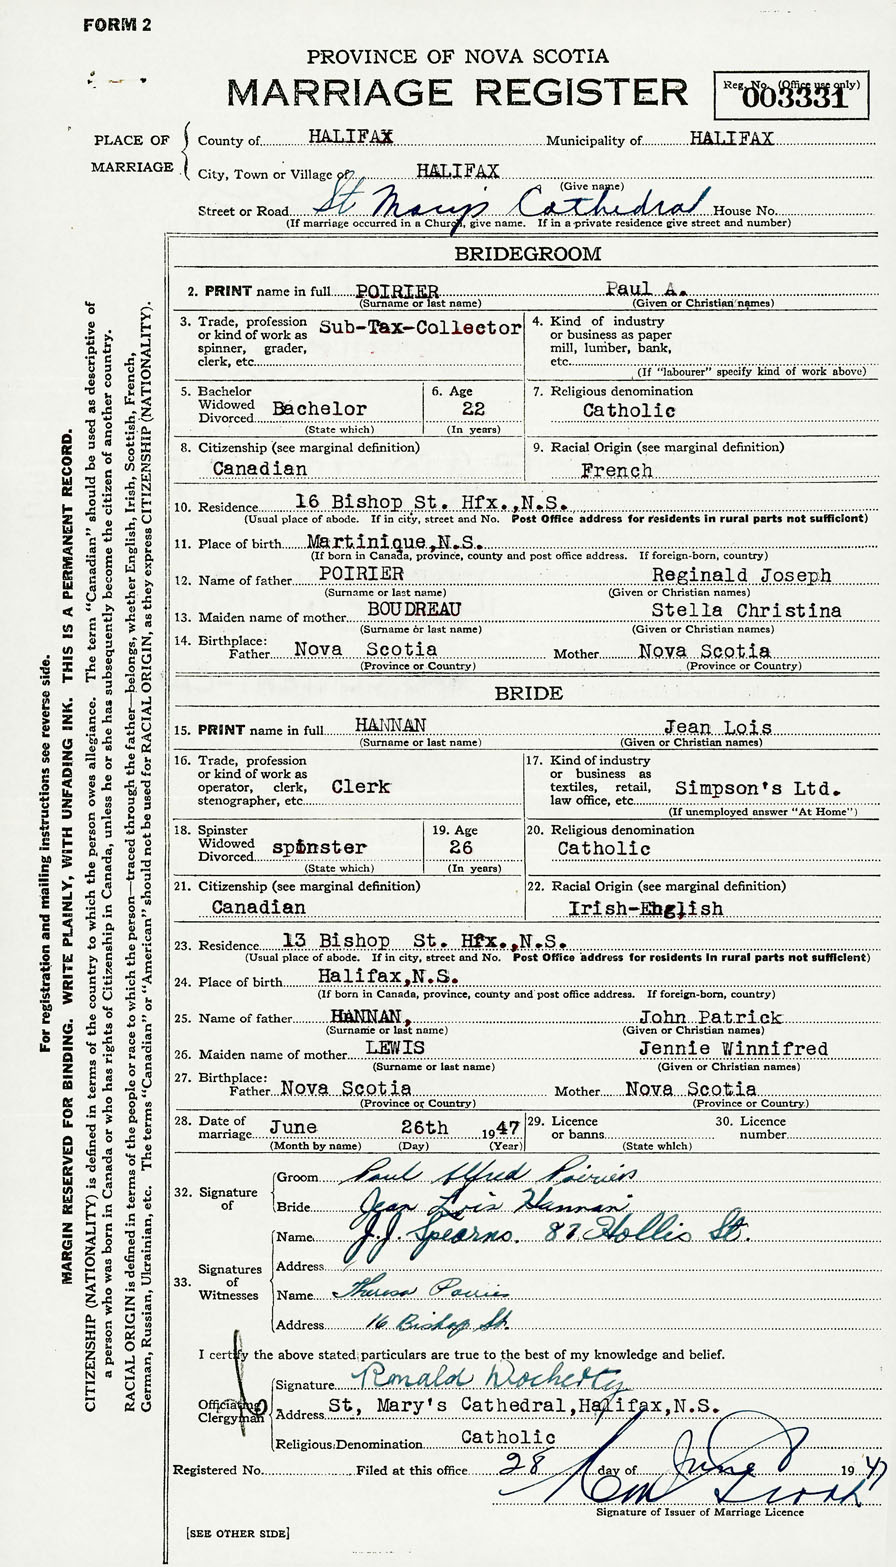 FORM 2
PROVINCE OF NOVA SCOTIA
MARRIAGE REGISTER
Reg. No. (Office use only)
003331
PLACE OF MARRIAGE
County of HALIFAX Municipality of HALIFAX
City, Town or Village of HALIFAX
(Give name)
Street or Road St Mary's Cathedral House No.
(If marriage occurred in a Church, give name. If in a private residence give street and number)
BRIDEGROOM
2. PRINT name in full POIRIER Paul A.
(Surname or last name) (Given or Christian names)
3. Trade, profession or kind of work as spinner, grader, clerk, etc. Sub-Tax-Collector
4. Kind of industry or business as paper mill, lumber, bank, etc.
(If "labourer" specify kind of work above)
5. Bachelor Widowed Divorced Bachelor
(State which)
6. Age 22
(In years)
7. Religious denomination
Catholic
8. Citizenship (see marginal definition)
Canadian
9. Racial Origin (see marginal definition)
French
10. Residence 16 Bishop St. Hfx.,N.S.
(Usual place of abode. If in city, street and No. Post Office address for residents in rural parts not sufficient)
11. Place of birth Martinique,N.S.
(If born in Canada, province, county and post office address. If foreign-born, country)
12. Name of father POIRIER Reginald Joseph
(Surname or last name) (Given or Christian names)
13. Maiden name of mother BOUDREAU Stella Christina
(Surname or last name) (Given or Christian names)
14. Birthplace:
Father Nova Scotia Mother Nova Scotia
(Province or Country) (Province or Country)
BRIDE
15. PRINT name in full HANNAN Jean Lois
(Surname or last name) (Given or Christian names)
16. Trade, profession or kind of work as operator, clerk, stenographer, etc. Clerk
17. Kind of industry or business as textiles, retail, law office, etc. Simpson's Ltd.
(If unemployed answer "At Home")
18. Spinster Widowed Divorced spinster
(State which)
19. Age 26
(In years)
20. Religious denomination
Catholic
21. Citizenship (see marginal definition)
Canadian
22. Racial Origin (see marginal definition)
Irish-English
23. Residence 13 Bishop St. Hfx.,N.S.
(Usual place of abode. If in city, street and No. Post Office address for residents in rural parts not sufficient)
24. Place of birth Halifax,N.S.
(If born in Canada, province, county and post office address. If foreign-born, country)
25. Name of father HANNAN, John Patrick
(Surname or last name) (Given or Christian names)
26. Maiden name of mother LEWIS Jennie Winnifred
(Surname or last name) (Given or Christian names)
27. Birthplace:
Father Nova Scotia Mother Nova Scotia
(Province or Country) (Province or Country)
28. Date of marriage June 26th 1947
(Month by name) (Day) (Year)
29. Licence or banns
(State which)
30. Licence number
32. Signature of
Groom Paul Alfred Poirier
Bride Jean Lois Hannan
33. Signatures of Witnesses
Name J.J. Spearns. 87 Hollis St.
Address
Name Theresa Poirier
Address 16 Bishop St.
I certify the above stated particulars are true to the best of my knowledge and belief.
Officiating Clergyman
Signature Ronald Docherty
Address St, Mary's Cathedral,Halifax,N.S.
Religious Denomination Catholic
Registered No. Filed at this office 28 day of June 1947
Signature of Issuer of Marriage Licence
[SEE OTHER SIDE]
For registration and mailing instructions see reverse side.
MARGIN RESERVED FOR BINDING. WRITE PLAINLY, WITH UNFADING INK. THIS IS A PERMANENT RECORD.
CITIZENSHIP (NATIONALITY) is defined in terms of the country to which the person owes allegiance. The term "Canadian" should be used as descriptive of
a person who was born in Canada or who has rights of Citizenship in Canada, unless he or she has subsequently become the citizen of another country.
RACIAL ORIGIN is defined in terms of the people or race to which the person—traced through the father—belongs, whether English, Irish, Scottish, French,
German, Russian, Ukrainian, etc. The terms "Canadian" or "American" should not be used for RACIAL ORIGIN, as they express CITIZENSHIP (NATIONALITY).